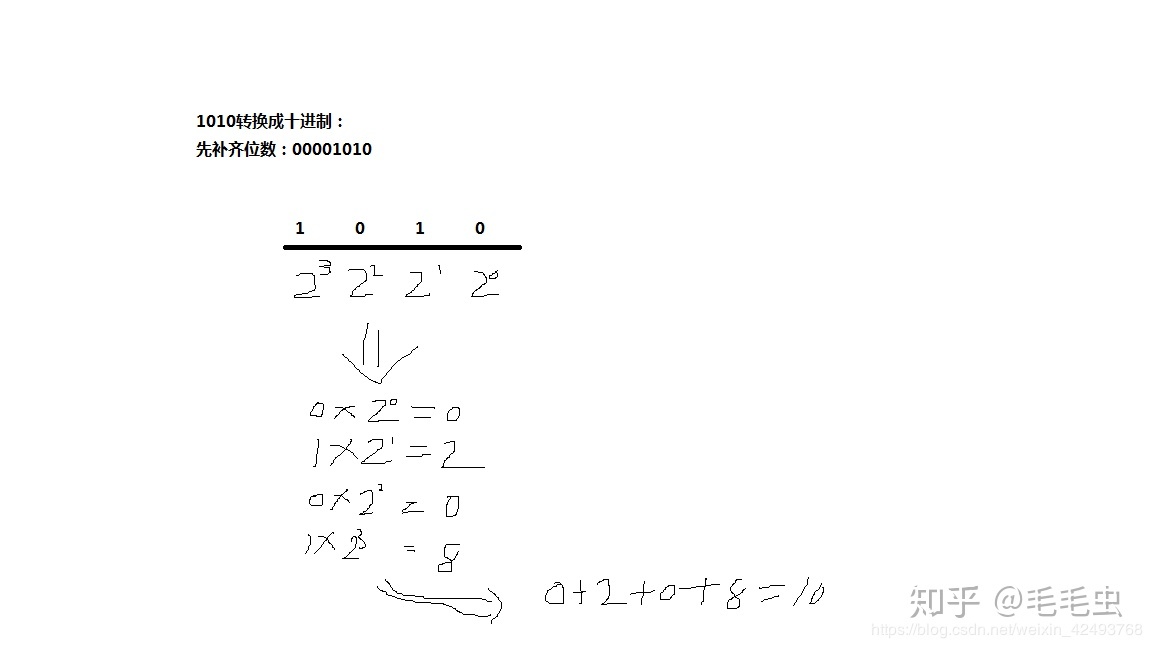 1010转换成十进制：
先补齐位数：00001010
1 0 1 0
2³ 2² 2¹ 2⁰
0×2⁰=0
1×2¹=2
0×2²=0
1×2³=8
0+2+0+8=10
知乎 @毛毛虫
https://blog.csdn.net/weixin_42493768